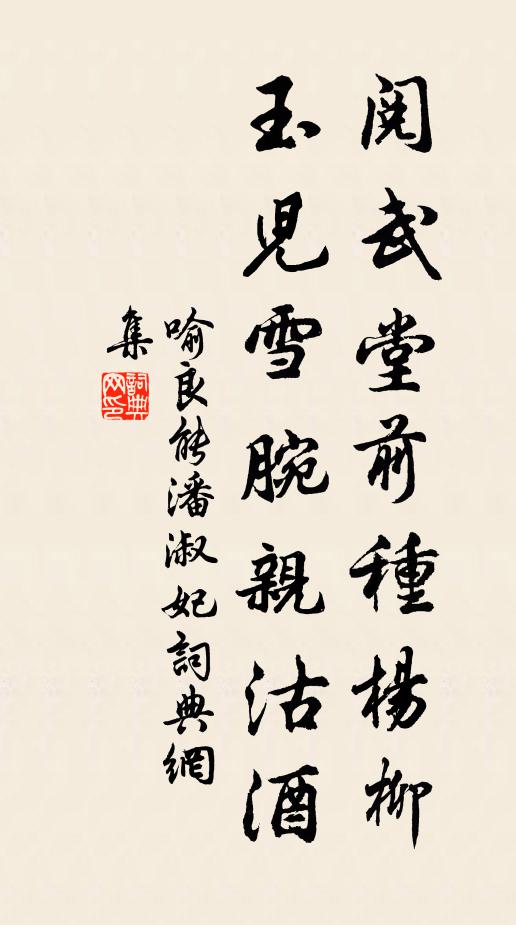 閱武堂前種楊柳
玉兒雪腕親沽酒
喻良能潘淑妃詞典網
集
詞典網印